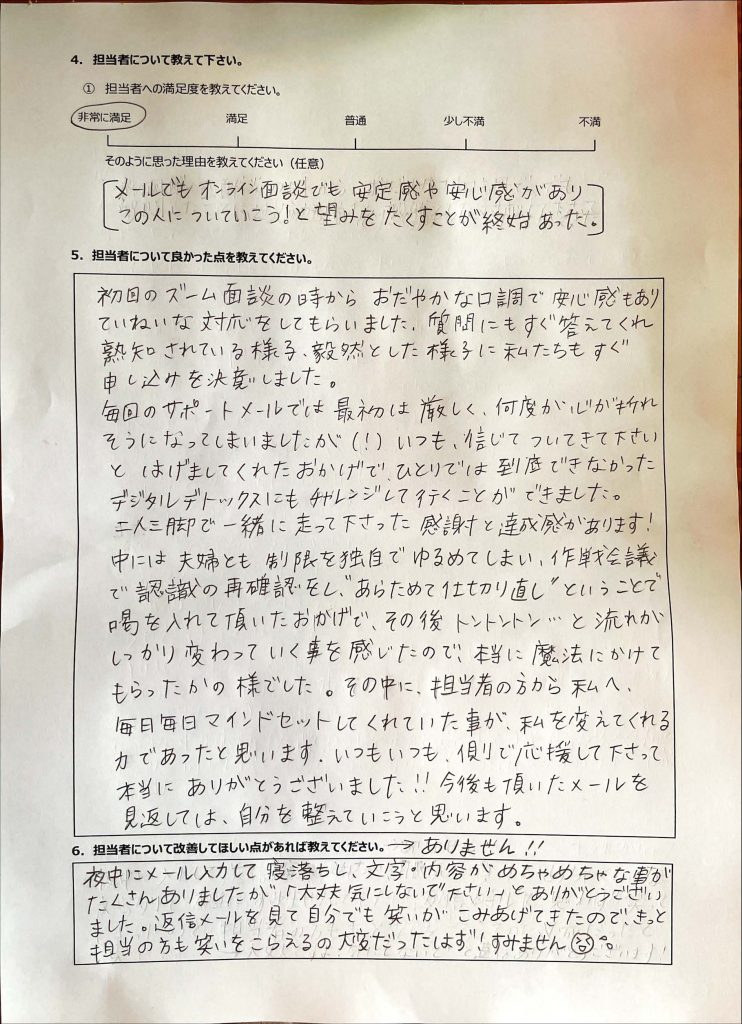 4. 担当者について教えて下さい。
① 担当者への満足度を教えてください。
非常に満足 満足 普通 少し不満 不満
そのように思った理由を教えてください（任意）
メールでもオンライン面談でも安定感や安心感があり
この人についていこう!と望みをたくすことが終始あった。
5. 担当者について良かった点を教えてください。
初回のズーム面談の時からおだやかな口調で安心感もあり
ていねいな対応をしてもらいました。質問にもすぐ答えてくれ
熟知されている様子、毅然とした様子に私たちもすぐ
申し込みを決意しました。
毎回のサポートメールでは最初は厳しく、何度か心が折れ
そうになってしまいましたが(!)いつも、信じてついてきて下さい
とはげましてくれたおかげで、ひとりでは到底できなかった
デジタルデトックスにもチャレンジして行くことができました。
二人三脚で一緒に走って下さった感謝と達成感があります!
中には夫婦とも制限を独自でゆるめてしまい、作戦会議
で認識の再確認をし、"あらためて仕切り直し"ということで
喝を入れて頂いたおかげで、その後トントントン…と流れが
しっかり変わっていく事を感じたので、本当に魔法にかけて
もらったかの様でした。その中に、担当者の方から私へ、
毎日毎日マインドセットしてくれていた事が、私を変えてくれる
力であったと思います。いつもいつも、側で応援して下さって
本当にありがとうございました!!今後も頂いたメールを
見返しては、自分を整えていこうと思います。
6. 担当者について改善してほしい点があれば教えてください。→ありません!!
夜中にメール入力して寝落ちし、文字・内容がめちゃめちゃな事が
たくさんありましたが「大丈夫気にしないで下さい」とありがとうござい
ました。返信メールを見て自分でも笑いがこみあげてきたので、きっと
担当の方も笑いをこらえるの大変だったはず!すみません